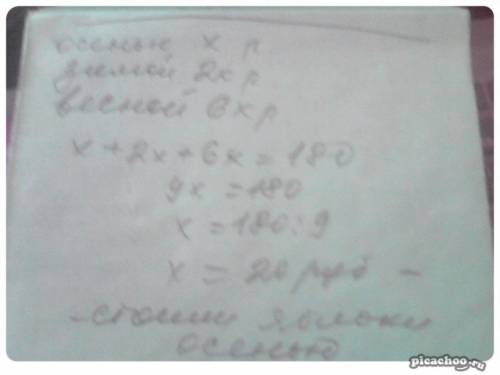 осенью х р
зимой 2х р
весной 6хр
х+2х+6х=180
9х=180
х=180:9
х=20 руб -
-стоили яблоки
осенью
picachoo.ru